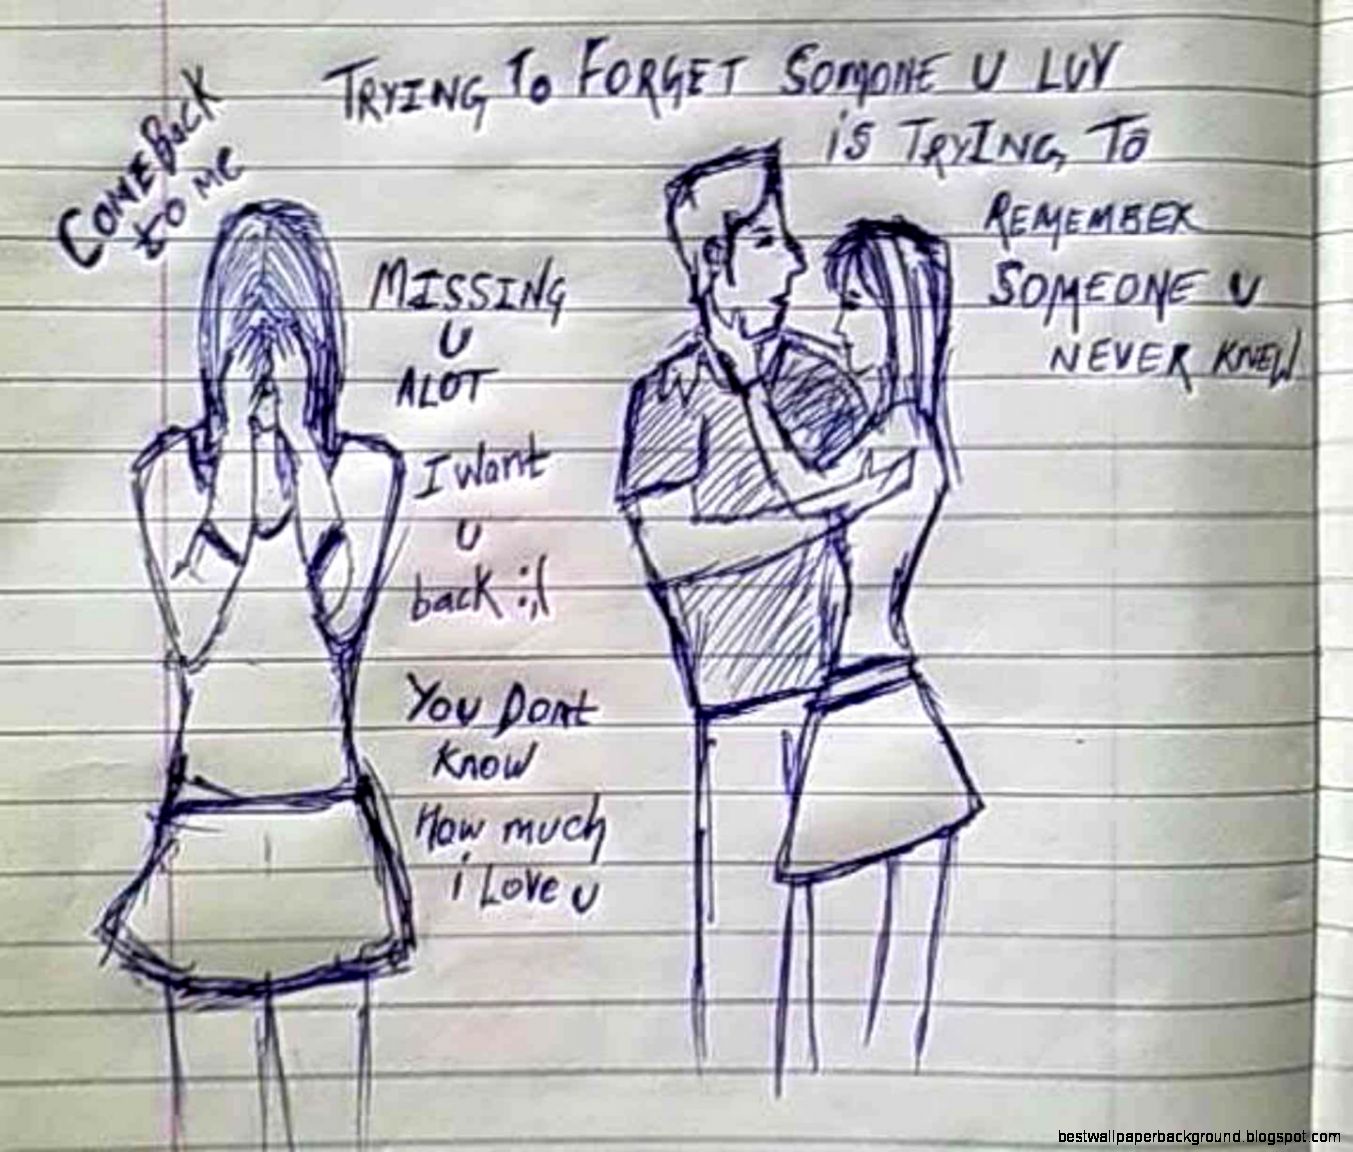 TRYING TO FORGET SOMONE U LUV
is TRYING TO
REMEMBER
SOMEONE U
NEVER KNEW
COME BacK
to ME
MISSING
U
ALOT
I Want
U
back :,(
You Dont
Know
How much
i Love U
bestwallpaperbackground.blogspot.com